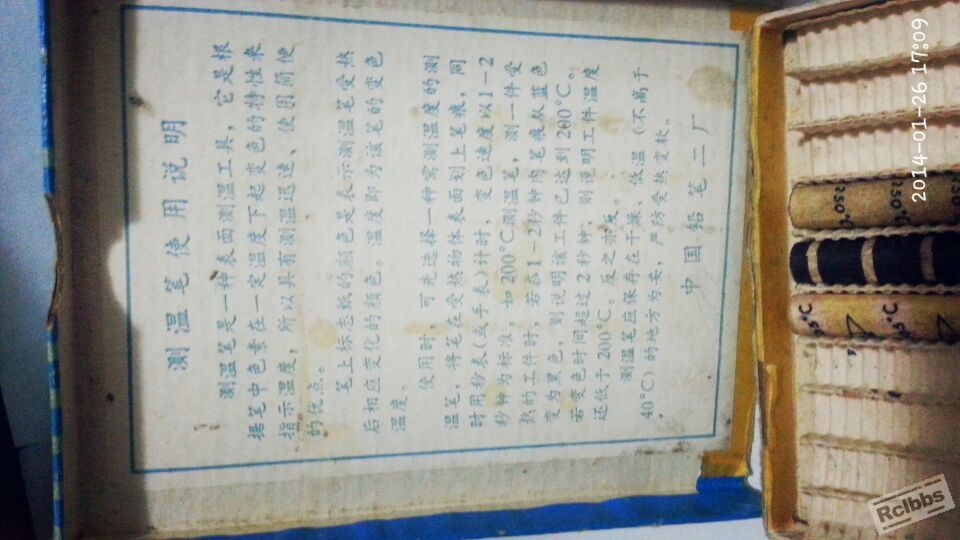 测温笔使用说明
测温笔是一种表面测温工具，它是根
据笔中色素在一定温度下起变色的特性来
指示温度，所以具有测温迅速、使用简便
的优点。
笔上标志纸的颜色是表示测温笔受热
后相应变化的颜色。温度即为该笔的变色
温度。
使用时，可先选择一种需测温度的测
温笔，将笔在受热物体表面划上笔痕，同
时用秒表(或手表)计时，变色速度以1－2
秒钟为标准。如200°C测温笔，测一件受
热的工件时，若在1－2秒钟内笔痕从蓝色
变为黑色，则说明该工件已达到200°C。
若变色时间超过2秒钟，则说明工件温度
还低于200°C。反之亦反。
测温笔应保存在干燥、低温(不高于
40°C)的地方为妥，严防受热变软。
中国铅笔二厂
250°C
2014-01-26 17:09
Rclbbs